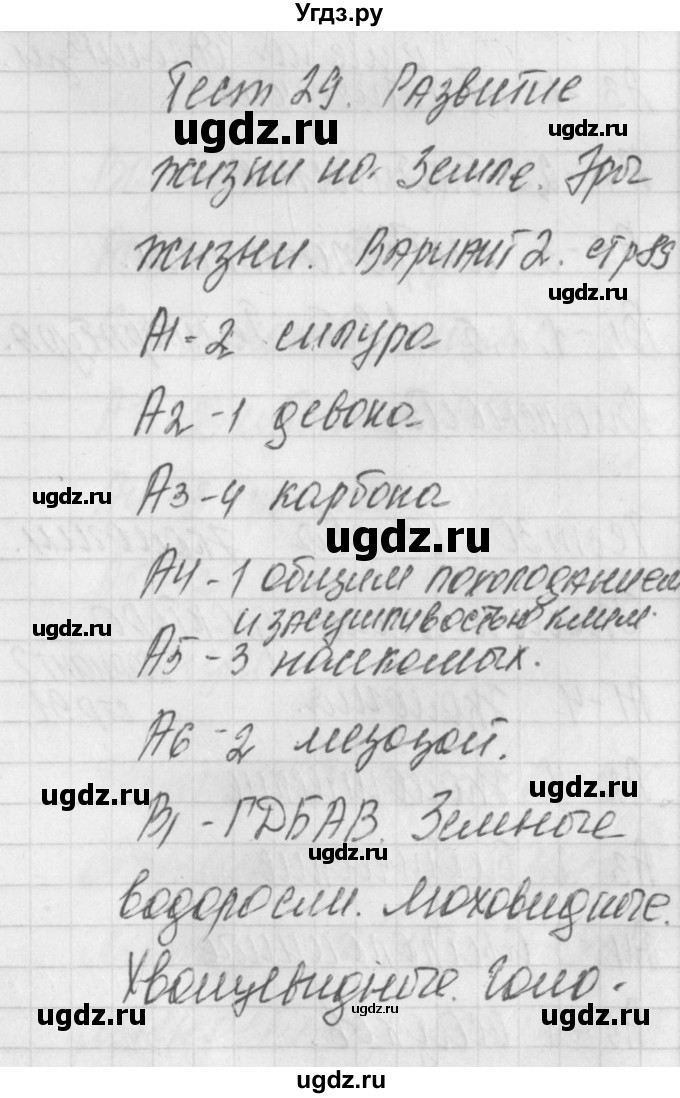 Угдз.ру
Тест 29. Развитие
ugdz.ru
ugdz.ru
жизни на Земле. Эры
жизни. Вариант 2. стр 89
ugdz.ru
А1-2 силура
А2-1 девона
ugdz.ru
А3-4 карбона
ugdz.ru
А4-1 общим похолоданием
и засушливостью клим.
ugdz.ru
А5-3 насекомых.
А6-2 мезозой.
ugdz.ru
ugdz.ru
В1-ГДБАВ. Зеленые
ugdz.ru
водоросли. Моховидные.
Хвощевидные. Голо-
ugdz.ru
ugdz.ru
ugdz.ru
ugdz.ru